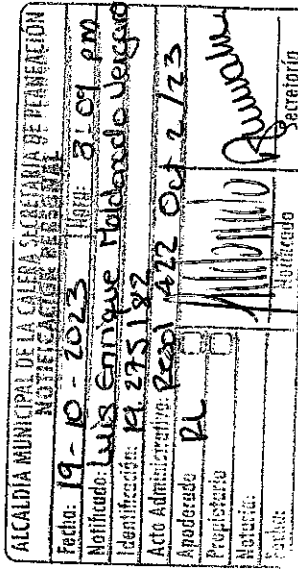 ALCALDÍA MUNICIPAL DE LA CALERA SECRETARIA DE PLANEACIÓN
NOTIFICACIÓN PERSONAL
Fecha: 19-10-2023 Hora: 3:09 pm
Notificado: Luis Enrique Maldonado Vergara
Identificación: 19.275182
Acto Administrativo: Resol 422 Oct 2/23
Apoderado RL
Propietario
Notaria:
Notificado Secretaria